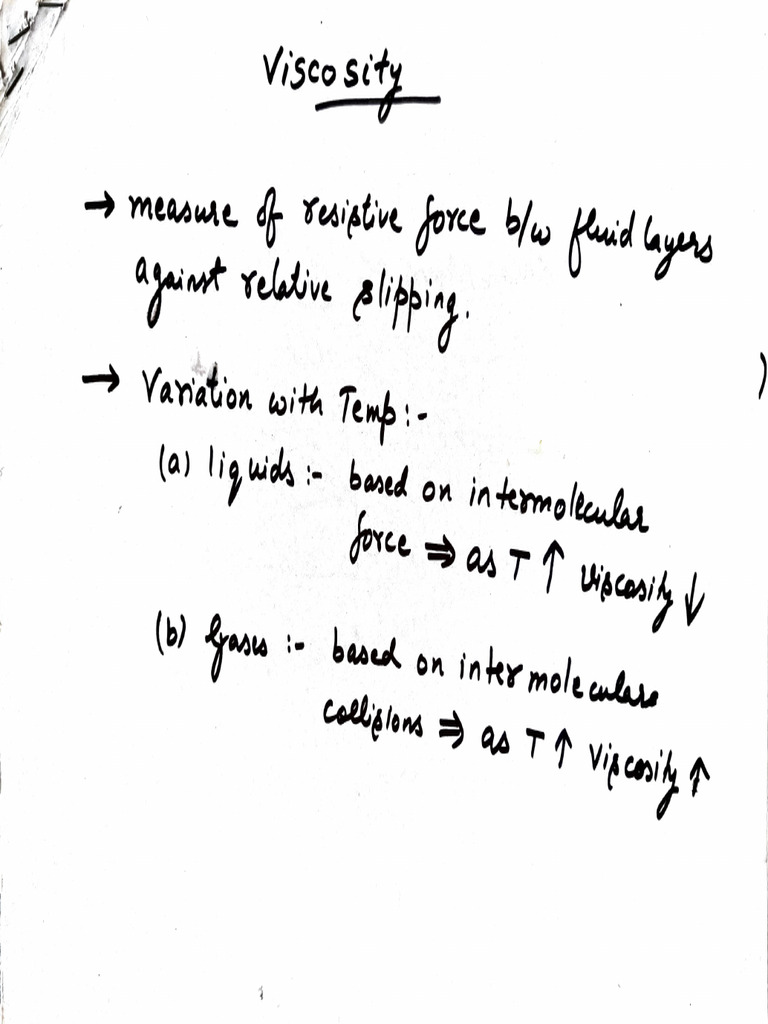 Viscosity
→ measure of resistive force b/w fluid layers
against relative slipping.
→ Variation with Temp:-
(a) liquids :- based on intermolecular
force ⇒ as T ↑ viscosity ↓
(b) Gases :- based on intermolecular
collisions ⇒ as T ↑ Viscosity ↑